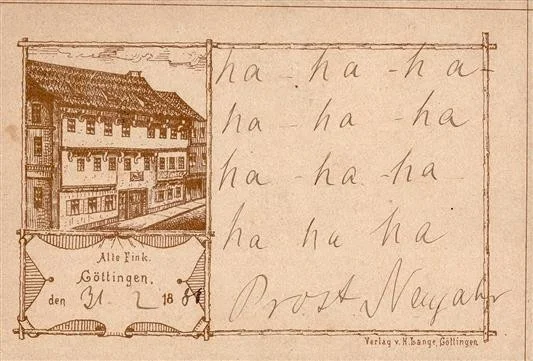 ha - ha - ha -
ha - ha - ha
ha - ha - ha
ha ha ha
Prost Neujahr
Alte Fink.
Göttingen.
den 31. 2 1881
Verlag v. H. Lange, Göttingen.